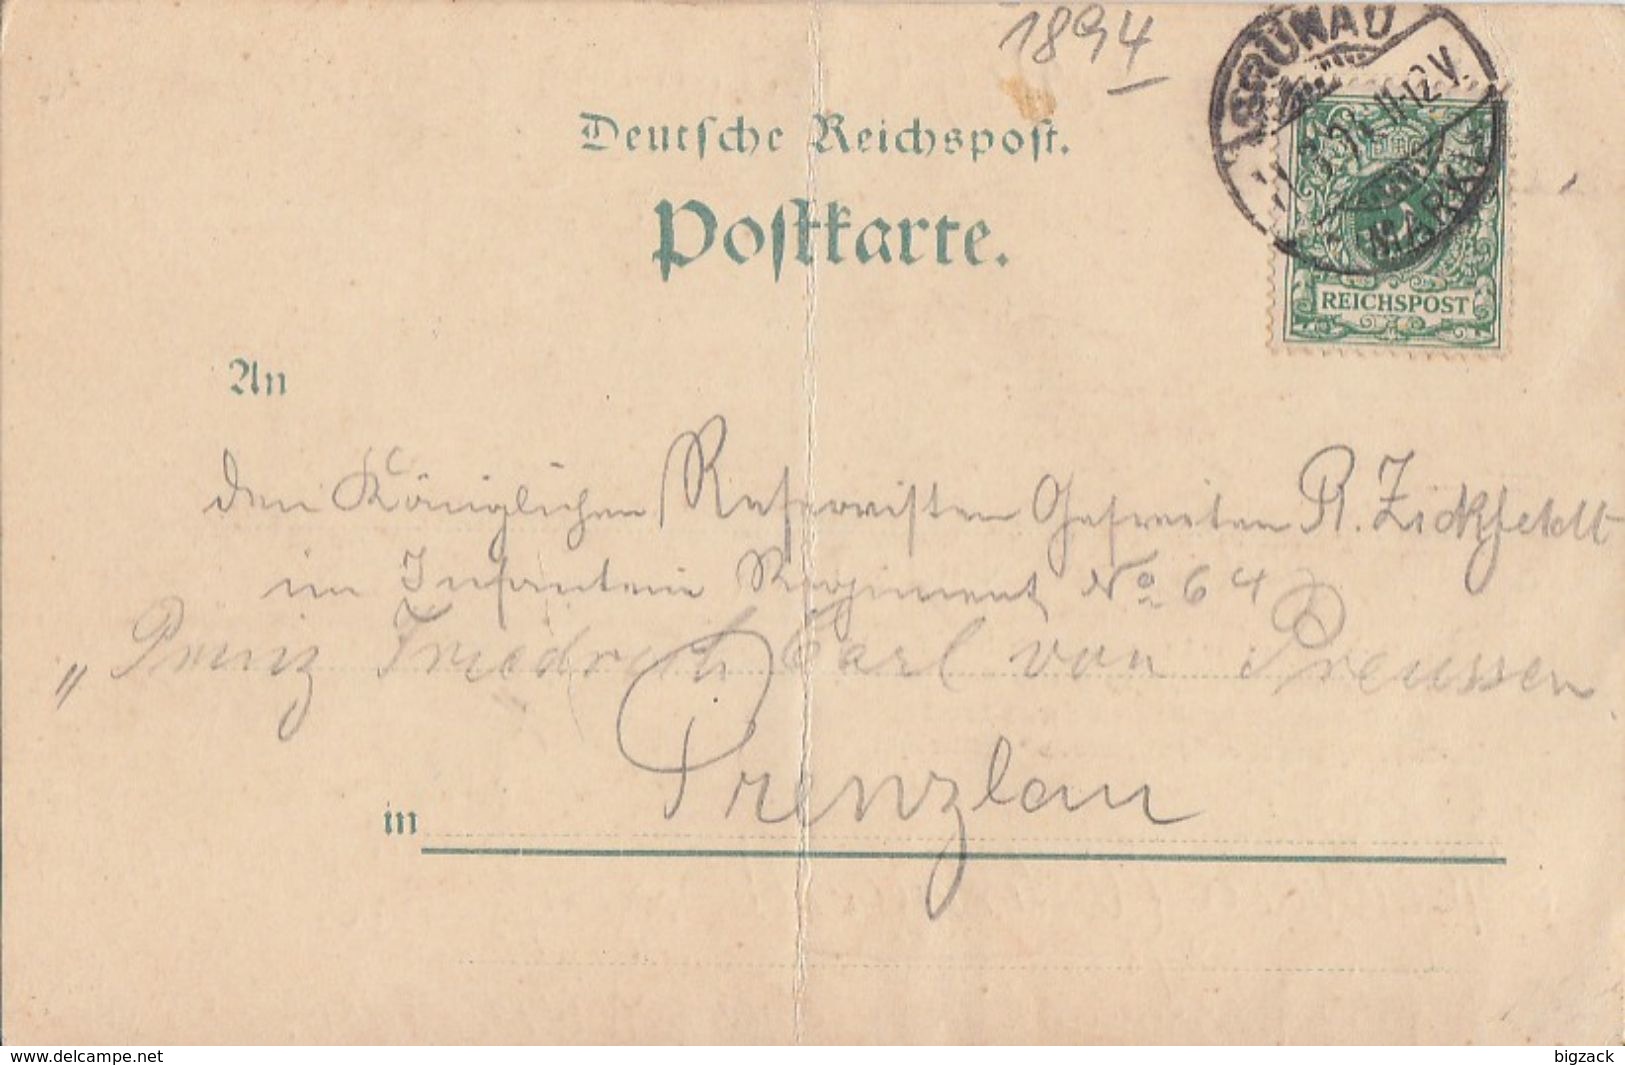 1894
GRÜNAU
11-12 V.
MARK
Deutsche Reichspost.
Postkarte.
REICHSPOST
An
den Königlichen Reservisten Gefreiten R. Zickfeldt
im Infanterie Regiment No 64
„Prinz Friedrich Carl von Preussen
in Prenzlau
www.delcampe.net
bigzack